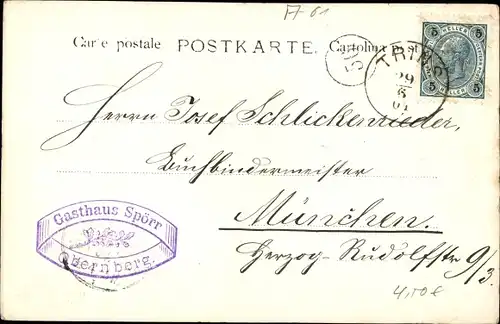 A 61
Carte postale POSTKARTE. Cartolina post
5 HELLER 5
TRINS
29
6
01
50
Herrn Josef Schlickenrieder,
Buchbindermeister
München.
Herzog-Rudolfstr 9/3.
Gasthaus Spörr
Obernberg.
4,50€